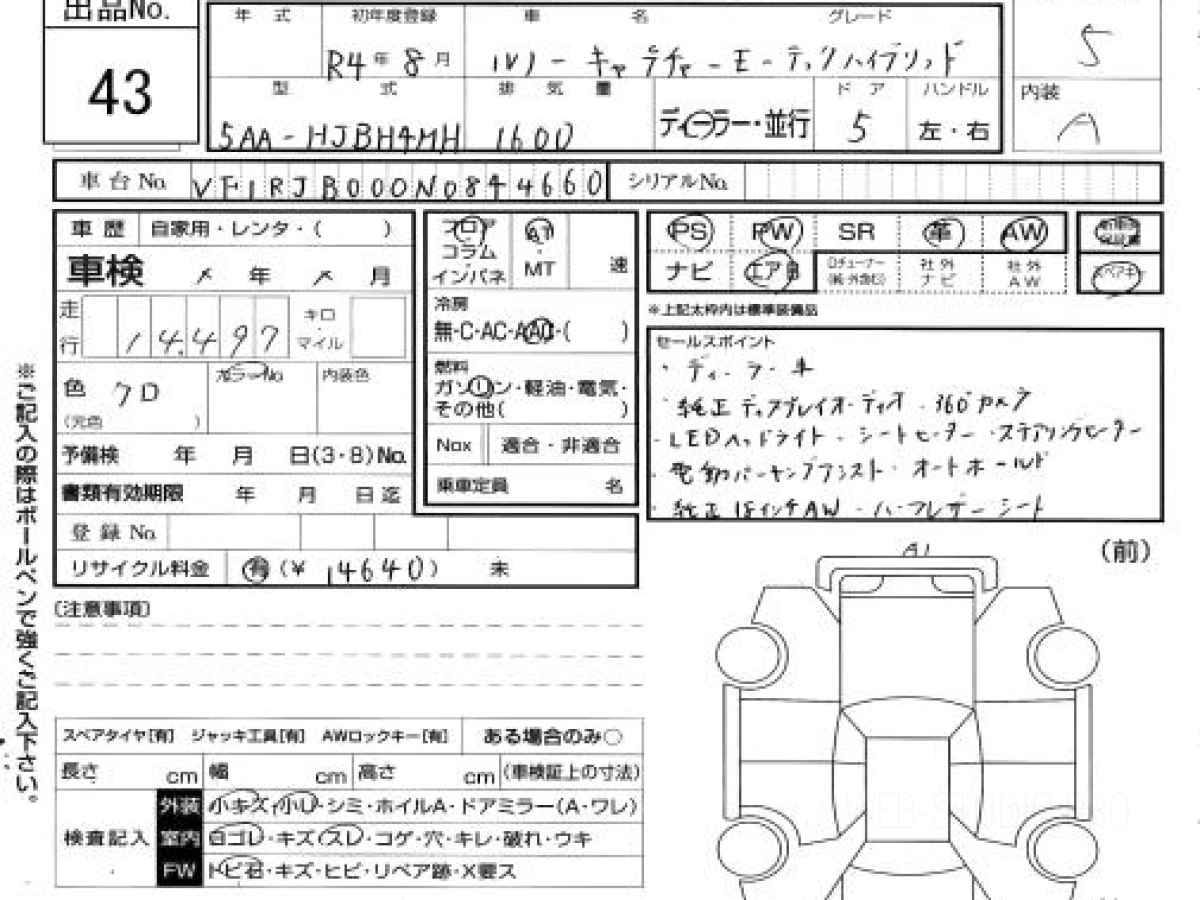 出品No.
43
年 式 初年度登録 車 名 グレード
R4年 8月 ルノーキャプチャーE-テックハイブリッド
型 式 排 気 量 ド ア ハンドル
5AA-HJBH4MH 1600 ディーラー・並行 5 左・右
5
内装
A
車台No. VF1RJB000N0844660 シリアルNo.
車 歴 自家用・レンタ・( )
車検 年 月
走行 14,497 キロ・マイル
色 クロ カラーNo 内装色
(元色 )
予備検 年 月 日(3・8)No.
書類有効期限 年 月 日迄
登 録 No.
リサイクル料金 有(¥ 14640) 未
フロア AT
コラム
インパネ MT 速
冷房
無・C・AC・AAC・( )
燃料
ガソリン・軽油・電気・
その他( )
Nox 適合・非適合
乗車定員 名
PS PW SR 革 AW 新車時保証書
ナビ エアB Dチューナー 社外ナビ 社外AW スペアキー
※上記太枠内は標準装備品
セールスポイント
・ディーラー車
・純正ディスプレイオーディオ・360°カメラ
・LEDヘッドライト・シートヒーター・ステアリングヒーター
・電動パーキングアシスト・オートホールド
・純正18インチAW・ハーフレザーシート
※ご記入の際はボールペンで強くご記入下さい。
(注意事項)
A1
(前)
スペアタイヤ[有] ジャッキ工具[有] AWロックキー[有] ある場合のみ○
長さ cm 幅 cm 高さ cm (車検証上の寸法)
検査記入
外装 小キズ・小U・シミ・ホイルA・ドアミラー(A・ワレ)
室内 白ゴレ・キズ・スレ・コゲ・穴・キレ・破れ・ウキ
FW トビ石・キズ・ヒビ・リペア跡・X要ス